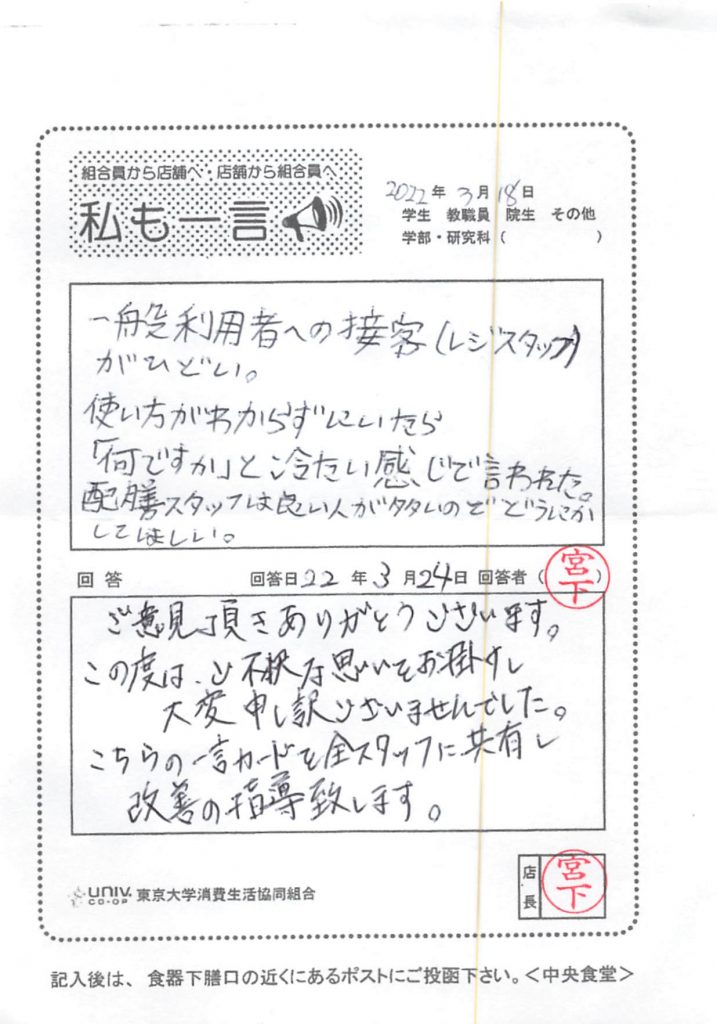 組合員から店舗へ・店舗から組合員へ
私も一言
2022年3月18日
学生 教職員 院生 その他
学部・研究科( )
一般利用者への接客(レジスタッフ)
がひどい。
使い方がわからずにいたら
「何ですか」と冷たい感じで言われた。
配膳スタッフは良い人が多いのでどうにか
してほしい。
回答 回答日22年3月24日 回答者(宮下)
ご意見頂きありがとうございます。
この度は、ご不快な思いをお掛けし
大変申し訳ございませんでした。
こちらの一言カードを全スタッフに共有し
改善の指導致します。
UNIV. CO-OP 東京大学消費生活協同組合
店長 宮下
記入後は、食器下膳口の近くにあるポストにご投函下さい。<中央食堂>